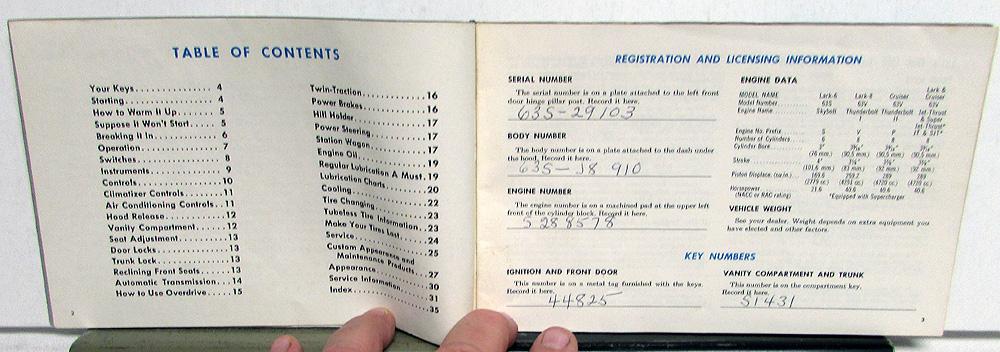 TABLE OF CONTENTS
Your Keys.............. 4
Starting................ 4
How to Warm It Up....... 5
Suppose It Won't Start..... 5
Breaking It In........... 6
Operation.............. 7
Switches............... 8
Instruments............. 9
Controls...............10
Climatizer Controls.......11
Air Conditioning Controls..11
Hood Release...........12
Vanity Compartment......12
Seat Adjustment........13
Door Locks.............13
Trunk Lock.............13
Reclining Front Seats.....13
Automatic Transmission...14
How to Use Overdrive.....15
2
Twin-Traction............16
Power Brakes............16
Hill Holder..............17
Power Steering..........17
Station Wagon...........17
Engine Oil..............19
Regular Lubrication A Must.19
Lubrication Charts........20
Cooling................22
Tire Changing...........23
Tubeless Tire Information..23
Make Your Tires Last......24
Service................25
Custom Appearance and
Maintenance Products...27
Appearance.............30
Service Information.......31
Index..................35
REGISTRATION AND LICENSING INFORMATION
SERIAL NUMBER
The serial number is on a plate attached to the left front
door hinge pillar post. Record it here.
63S-29103
BODY NUMBER
The body number is on a plate attached to the dash under
the hood. Record it here.
63S-J8 910
ENGINE NUMBER
The engine number is on a machined pad at the upper left
front of the cylinder block. Record it here.
S 288578
ENGINE DATA
MODEL NAME Lark-6 Lark-8 Cruiser Lark 8 Cruiser
Model Number 63S 63V 63V 63V
Engine Name Skybolt Thunderbolt Thunderbolt Jet-Thrust
& Super
Jet-Thrust*
Engine No. Prefix S V P
Number of Cylinders 6 8 8 8
Cylinder Bore 3" 3 9/16" 3 9/16" 3 9/16"
(76 mm.) (90.5 mm.) (90.5 mm.) (90.5 mm.)
Stroke 4"
(101.6 mm.) (83 mm.) (92 mm.) (92 mm.)
Piston Displace. (cu.in.) 169.6 259.2 289 289
(2779 cc.) (4251 cc.) (4720 cc.) (4720 cc.)
Horsepower 21.6 40.6 40.6 40.6
(NACC or RAC rating) *Equipped with Supercharger
VEHICLE WEIGHT
See your dealer. Weight depends on extra equipment you
have elected and other factors.
KEY NUMBERS
IGNITION AND FRONT DOOR
This number is on a metal tag furnished with the keys.
Record it here.
44825
VANITY COMPARTMENT AND TRUNK
This number is on the compartment key.
Record it here.
S1431
3